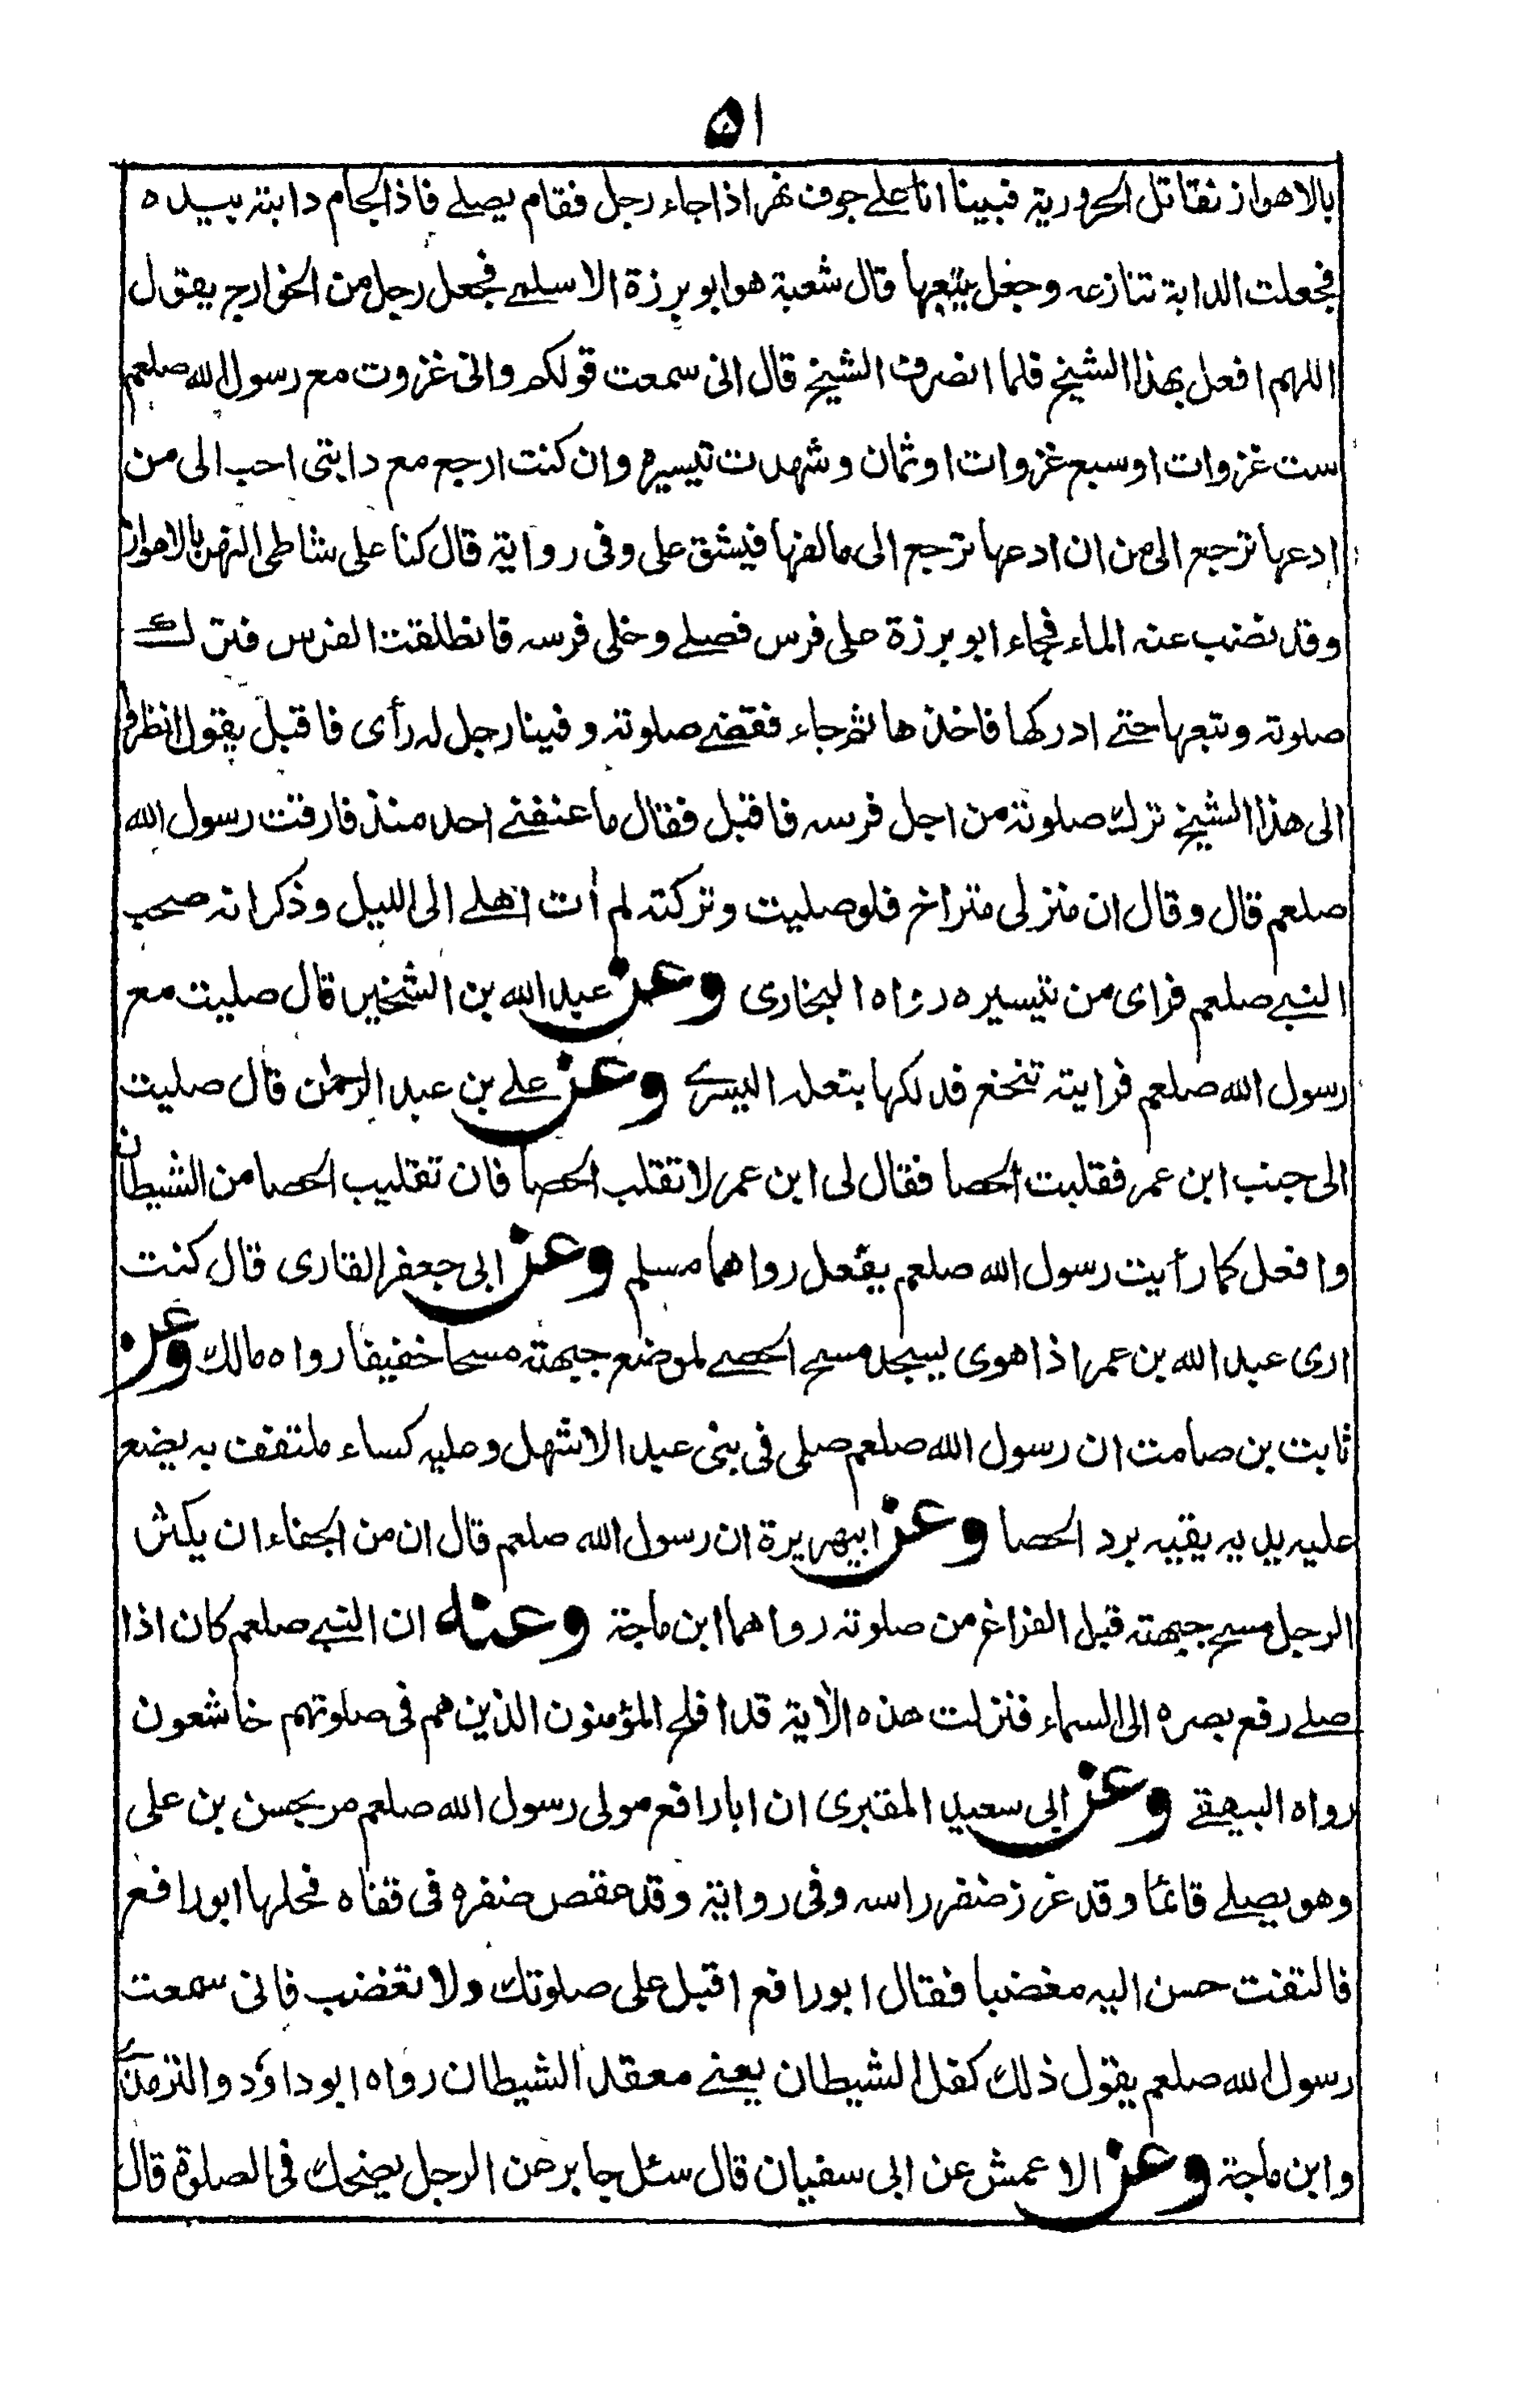 ٥١
بالاهواز نقاتل الحرورية فبينا انا علے جوف نهر اذا جاء رجل فقام يصلے فاذا لجام دابته بيده
فجعلت الدابة تنازعه وجعل يتبعها قال شعبة هو ابو برزة الاسلمے فجعل رجل من الخوارج يقول
اللهم افعل بهذا الشيخ فلما انصرف الشيخ قال انى سمعت قولكم وانى غزوت مع رسول الله صلعم
ست غزوات او سبع غزوات او ثمان وشهدت تيسيره وان كنت ارجع مع دابتى احب الى من
ادعها ترجع الى من ان ادعها ترجع الى مالفها فيشق على وفى رواية قال كنا على شاطى النهر بالاهواز
وقد نضب عنه الماء فجاء ابو برزة على فرس فصلے وخلى فرسه فانطلقت الفرس فترك
صلوته وتبعها حتے ادركها فاخذها ثم جاء فقضے صلوته وفينا رجل له رأى فاقبل يقول انظروا
الى هذا الشيخ ترك صلوته من اجل فرسه فاقبل فقال ما عنفنے احد منذ فارقت رسول الله
صلعم قال وقال ان منزلى متراخ فلو صليت وتركته لم أت اهلے الى الليل وذكر انه صحب
النبے صلعم فراى من تيسيره رواه البخارى وعن عبد الله بن الشخير قال صليت مع
رسول الله صلعم فرايته تنخع فدلكها بنعله اليسرے وعن علے بن عبد الرحمن قال صليت
الى جنب ابن عمر فقلبت الحصا فقال لى ابن عمر لا تقلب الحصا فان تقليب الحصا من الشيطان
وافعل كما رأيت رسول الله صلعم يفعل رواهما مسلم وعن ابى جعفر القارى قال كنت
ارى عبد الله بن عمر اذا هوى ليسجد مسح الحصے لموضع جبهته مسحا خفيفا رواه مالك وعن
ثابت بن صامت ان رسول الله صلعم صلى فى بنى عبد الاشهل وعليه كساء ملتفف به يضع
عليه يديه يقيه برد الحصا وعن ابيهريرة ان رسول الله صلعم قال ان من الجفاء ان يكثر
الرجل مسح جبهته قبل الفراغ من صلوته رواهما ابن ماجة وعنه ان النبے صلعم كان اذا
صلے رفع بصره الى السماء فنزلت هذه الأية قد افلح المؤمنون الذين هم فى صلوتهم خاشعون
رواه البيهقے وعن ابى سعيد المقبرى ان ابا رافع مولى رسول الله صلعم مر بحسن بن على
وهو يصلے قائما وقد غرز ضفر راسه وفى رواية وقد عقص ضفره فى قفاه فحلها ابو رافع
فالتفت حسن اليه مغضبا فقال ابو رافع اقبل على صلوتك ولا تغضب فانى سمعت
رسول الله صلعم يقول ذلك كفل الشيطان يعنے معقد الشيطان رواه ابو داؤد والترمذے
وابن ماجة وعن الاعمش عن ابى سفيان قال سئل جابر عن الرجل يضحك فى الصلوة قال